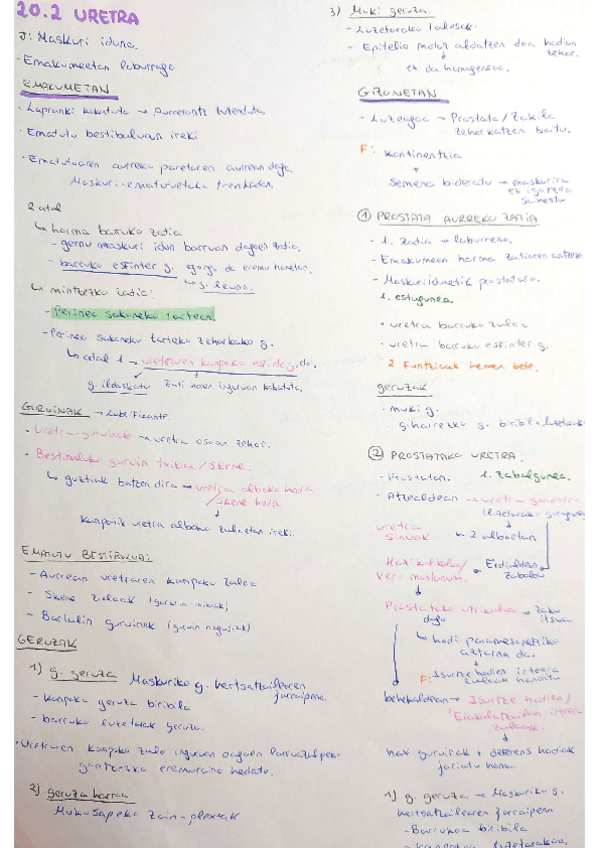 20.2 URETRA
J: Maskuri iduna.
· Emakumeetan laburrago
EMAKUMETAN
· Lapranki kokatuta → Aurrerantz tutenduta
· Ematutu bestibuluan ireki
· Ematutuaren aurreko paretaren aurrean dago,
Maskuri-ematutuetako trenkadan.
2 atal
↳ horma barruko zatia
- gernu maskuri idun barruan dagoen zatia.
- barruko esfinter g. egongo da eremu honetan.
↳ g. leuna.
↳ mintzezko zatia:
- Perineo sakoneko tartean.
- Perineo sakoneko tarteko zeharkako g.
↳ atal 1 → uretraren kanpoko esfinter g. da.
g. ildaskatu
GURUINAK → Lubrifikante.
· Uretra-guruinak → uretra osoan zehar.
· Bestibuluko guruin txikiak / Skene.
↳ guztiak batzen dira → uretra alboko hodia
/Skene hodia
↓
Kanpotik uretra alboko zuloetan ireki.
EMATUTU BESTIBULUA:
- Aurrean uretraren kanpoko zuloa
- Skene zuloak (guruin txikiak)
- Bartolin guruinak (guruin nagusiak)
GERUZAK
1) g. geruza Maskuriko g. hertsatzailearen
jarraipena
- kanpoko geruza biribila
- barruko luzetarak geruza.
· Uretraren kanpoko zulo inguruan dagoen larruazalpeko
eremuraino hedatu.
2) geruza harroa
Mukosapeko zain-plexuak
3) Muki geruza.
- Luzetarako tolesak.
- Epitelio motak aldatzen doa hodian
zehar.
↓
ez da homogeneoa.
GIZONETAN
· Luzeagoa → Prostata / Zakila
zeharkatzen baitu.
F: Kontinentzia
+
Semena bideratu → maskurira
ez igotzea
① PROSTATA AURREKO ZATIA
- 1. Zatia → laburrena.
- Emakumeen horma zatiaren antzeko.
- Maskuri idunetik prostatara.
1. estugunea.
· uretra barruko zuloa
· uretra barruko esfinter g.
2 Funtzioak hemen bete.
geruzak
- muki g.
giharrezko g. biribil + luzetarak
② PROSTATAKO URETRA.
- Prostatan. 1. Zabalgunea.
- Atzealdean → uretra gandorra
uretra
sinuak ← 2 alboetan
Hazi kolikulua /
Veru montanum. ← Erdialdean
zabaldu
Prostatako utrikulua → zaku
itsua
↳ hodi paramesonefriko
aztarna da.
F: Isurtze hodien irteera
behekaldean → Isurtze hodien /
Eiakulatzaileen irteera
zuloak.
↓
hazi guruinak + deferens hodiak
jariatu hona.
1) g. geruza → Maskuriko g.
hertsatzailearen jarraipena
- Barrukoa biribila
- Kanpokoa luzetarakoa.